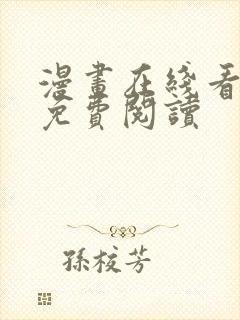 漫畫在綫看
免費閱讀
孫校芳